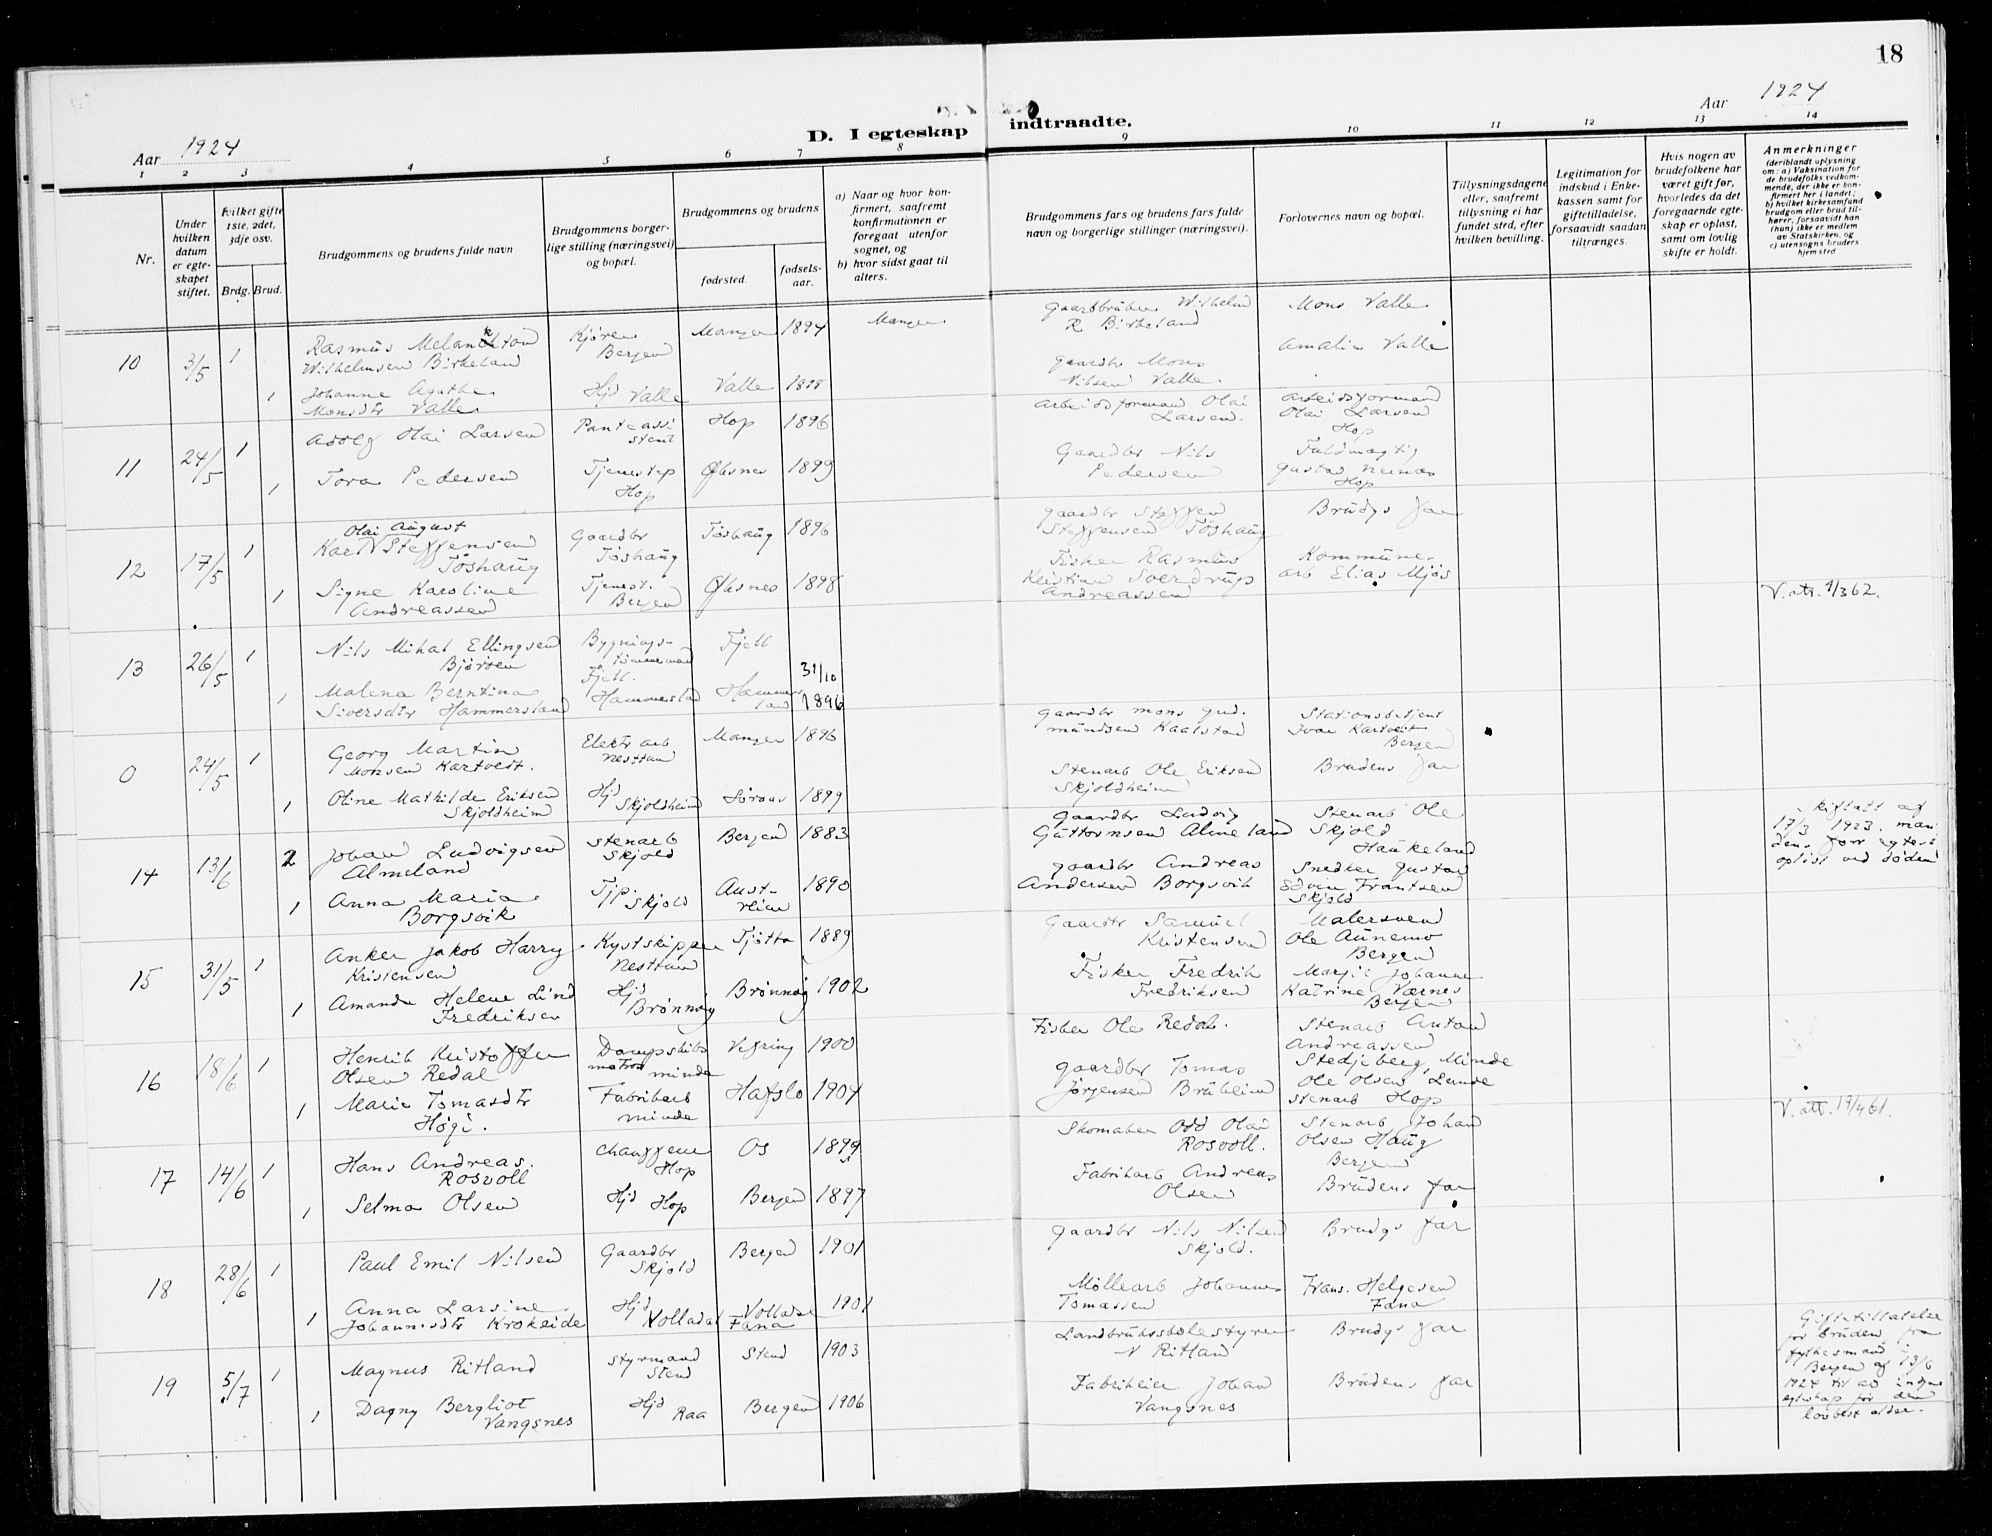 18
Aar 1924
D. I egteskap indtraadte.
Aar 1924
1 2 3 4 5 6 7 8 9 10 11 12 13 14
Nr.
Under hvilken datum er egteskapet stiftet.
hvilket gifte 1ste, 2det, 3dje osv.
Brdg. Brud.
Brudgommens og brudens fulde navn
Brudgommens borgerlige stilling (næringsvei) og bopæl.
Brudgommens og brudens
fødested.
fødselsaar.
a) Naar og hvor konfirmert, saafremt konfirmationen er foregaat utenfor sognet, og
b) hvor sidst gaat til alters.
Brudgommens fars og brudens fars fulde navn og borgerlige stillinger (næringsvei).
Forlovernes navn og bopæl.
Tillysningsdagene eller, saafremt tillysning ei har fundet sted, efter hvilken bevilling.
Legitimation for indskud i Enkekassen samt for giftetilladelse, forsaavidt saadan tiltrænges.
Hvis nogen av brudefolkene har været gift før, hvorledes da det foregaaende egteskap er opløst, samt om lovlig skifte er holdt.
Anmerkninger
(deriblandt oplysning om: a) Vaksination for de brudefolks vedkommende, der ikke er konfirmert her i landet; b) hvilket kirkesamfund brudgom eller brud tilhører, forsaavidt han (hun) ikke er medlem av Statskirken, og c) utensogns bruders hjemsted
10 3/5 1 Rasmus Melankton Kjøre Manger 1894 Manger Gaardbruker Wilhelm Mons Valle
Wilhelmsen Birkeland Bergen R Birkeland
1 Johanne Agathe Hjd Valle Valle Gaardbr Mons Amalie Valle
Monsdtr Valle Nilsen Valle
11 24/5 1 Adolf Olai Larsen Pante assistent Hop 1896 Arbeidsformand Olai Larsen. Arbeidsformand Olai Larsen Hop
1 Tora Pedersen Tjenestep Hop Øksnes 1899 Gaardbr Nils Pedersen Fuldmægtig Gustav Hop
12 17/5 1 Olai August
Karl Steffensen Tøshaug Gaardbr Tøshaug Tøshaug 1896 Gaardbr Steffen Steffensen Tøshaug Brudgs far
1 Signe Karoline Andreassen Tjenest. Bergen Øksnes 1898 Fisker Rasmus Kristian Sverdrup Andreassen Kommunearb Elias Mjøs V. atr. 1/3 62.
13 26/5 1 Nils Mikal Ellingsen Bjørøen Bygningstømmermand Fjell. Fjell
1 Malena Berntina Siversdtr Hammersland Hammersland Hammersland 31/10 1896
0 24/5 1 Georg Martin Monsen Kartveit. Elektr arb Nesttun Manger 1896 Gaardbr Mons Gudmundsen Kaalstad Stationsbetjent Ivar Kartveit Bergen
1 Oline Mathilde Eriksen Skjoldheim Hjd Skjoldheim 1899 Stenarb Ole Eriksen Skjoldheim Brudens far
14 13/6 2 Johan Ludvigsen Almeland Stenarb Skjold Bergen 1883 Gaardbr Ludvig Guttormsen Almeland Stenarb Ole Skjold Haukeland Skifteatt af 17/3 1923. mandens forr egtesk opløst ved døden
1 Anna Maria Borgsvik Tjp Skjold 1890 Gaardbr Andreas Andersen Borgsvik Snedker Gustav Edvin Frantsen Skjold
15 31/5 1 Anker Jakob Harry Kristensen Kystskipper Nesttun Tjøtta 1889 Gaardbr Samuel Kristensen Malersvend Ole Aunemo Bergen
1 Amanda Helene Lind Fredriksen Hjd Brønnøy Brønnøy 1902 Fisker Fredrik Fredriksen Margit Johanne Katrine Værnes Bergen
16 18/6 1 Henrik Kristoffer Olsen Redal Dampskibsmatros Minde Vefring 1900 Fisker Ole Redal. Stenarb Anton Andreassen Stedjeberg, Minde
1 Marie Tomasdtr Høgi. Fabrikarb Minde Hafslo 1904 Gaardbr Tomas Jørgensen Ole Olsen Lunde Stenarb Hop
17 14/6 1 Hans Andreas Rosvoll Chauffeur Hop Os 1899 Skomaker Odd Olai Rosvoll. Stenarb Johan Olsen Haug Bergen V. att. 17/4 61.
1 Selma Olsen Hjd Hop Bergen 1897 Fabrikarb Andreas Olsen Brudens far
18 28/6 1 Paul Emil Nilsen Gaardbr Skjold Bergen 1901 Gaardbr Nils Nilsen Skjold. Brudgs far
1 Anna Larsine Johannesdtr Krokeide Hjd Fana 1901 Møllearb Johannes Tomassen Frans. Helgesen Fana
19 5/7 1 Magnus Ritland Styrmand Stend Stend 1903 Landbruksskolestyrer N Ritland Brudgs far
1 Dagny Bergliot Vangsnes Hjd Raa Bergen 1906 Fabrikeier Johan Vangsnes Brudens far Giftetillatelse for bruden fra fylkesmand i Bergen af 13/6 1924 til at indgaa egteskap før den lovbest alder.